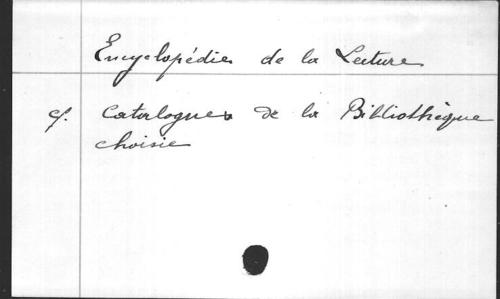 Encyclopédie de la Lecture
cf. Catalogue de la Bibliothèque
choisie